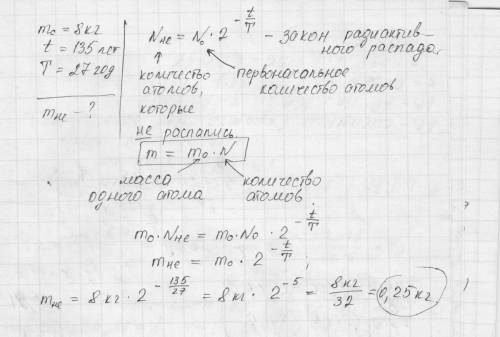 m₀ = 8 кг
t = 135 лет
T = 27 год
mне - ?
Nне = N₀ · 2^(-t/T) - закон радиактив-
ного распада.
количство
атомов,
которые
не распались.
первоначальное
количство атомов
m = m₀ · N
масса
одного атома
количство
атомов
m₀ · Nне = m₀ · N₀ · 2^(-t/T)
mне = m₀ · 2^(-t/T)
mне = 8 кг · 2^(-135/27) = 8 кг · 2^(-5) = 8 кг/32 = 0,25 кг.